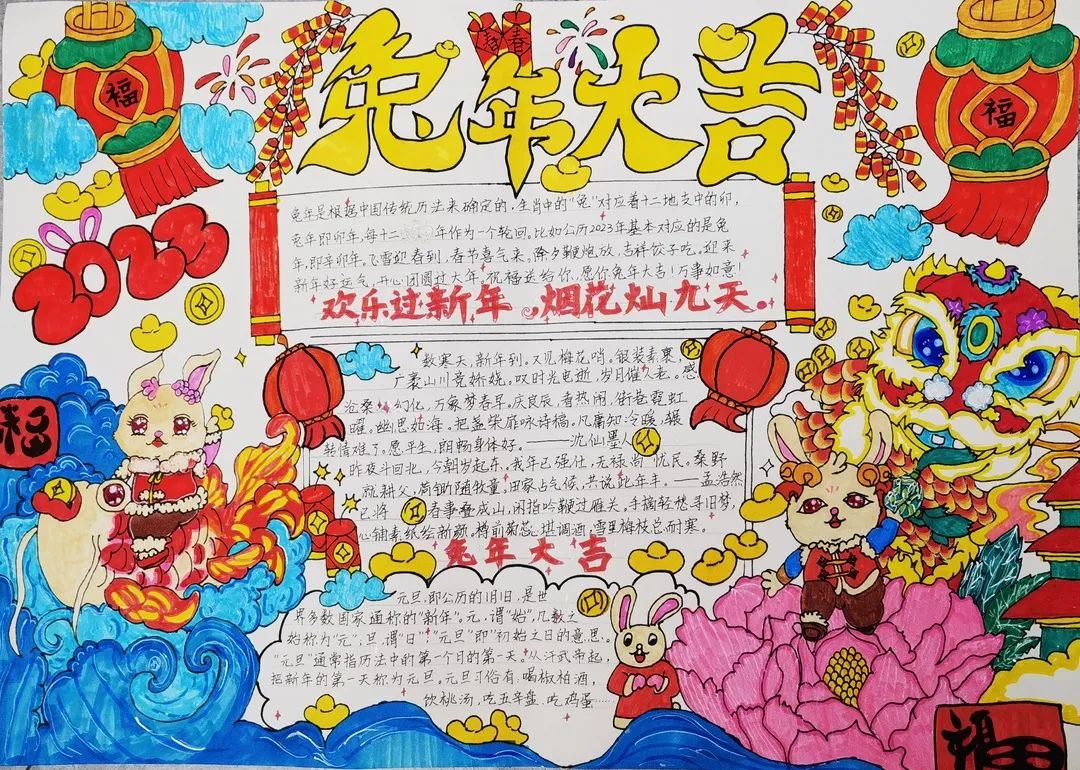 福
逐春
兔年大吉
福
2023
兔年是根据中国传统历法来确定的,生肖中的“兔”对应着十二地支中的卯,
兔年即卯年,每十二年作为一个轮回。比如公历2023年基本对应的是兔
年,即辛卯年,飞雪迎春到,春节喜气来。除夕鞭炮放,吉祥饺子吃,迎来
新年好运气,开心团圆过大年。祝福送给你,愿你兔年大吉!万事如意!
欢乐过新年,烟花灿九天。
数寒天,新年到。又见梅花哨。银装素裹,
广袤山川竞娇娆。叹时光电逝,岁月催人老。感
沧桑幻化,万象梦春早。庆良辰,看热闹,街巷霓虹
曜。幽思如海,把盏柴扉咏诗稿。凡庸知冷暖,辗
转情难了。愿平生,朗畅身体好。——沈仙墨人
昨夜斗回北,今朝岁起东,我年已强仕,无禄尚忧民。桑野
就耕父,荷锄随牧童,田家占气候,共说此年丰。——孟浩然
已将春事叠成山,闲指吟鞭过雁关。手摘轻愁寻旧梦,
心铺素纸绘新颜。樽前菊蕊堪调酒,雪里梅枝总耐寒。
兔年大吉
元旦,即公历的1月1日,是世
界多数国家通称的“新年”。元,谓“始”,凡数之
始称为“元”;旦,谓“日”;“元旦”即“初始之日的意思。
“元旦”通常指历法中的第一个月的第一天。从汗武帝起,
把新年的第一天称为元旦。元旦习俗有:喝椒柏酒,
饮桃汤,吃五辛盘,吃鸡蛋……
福
福